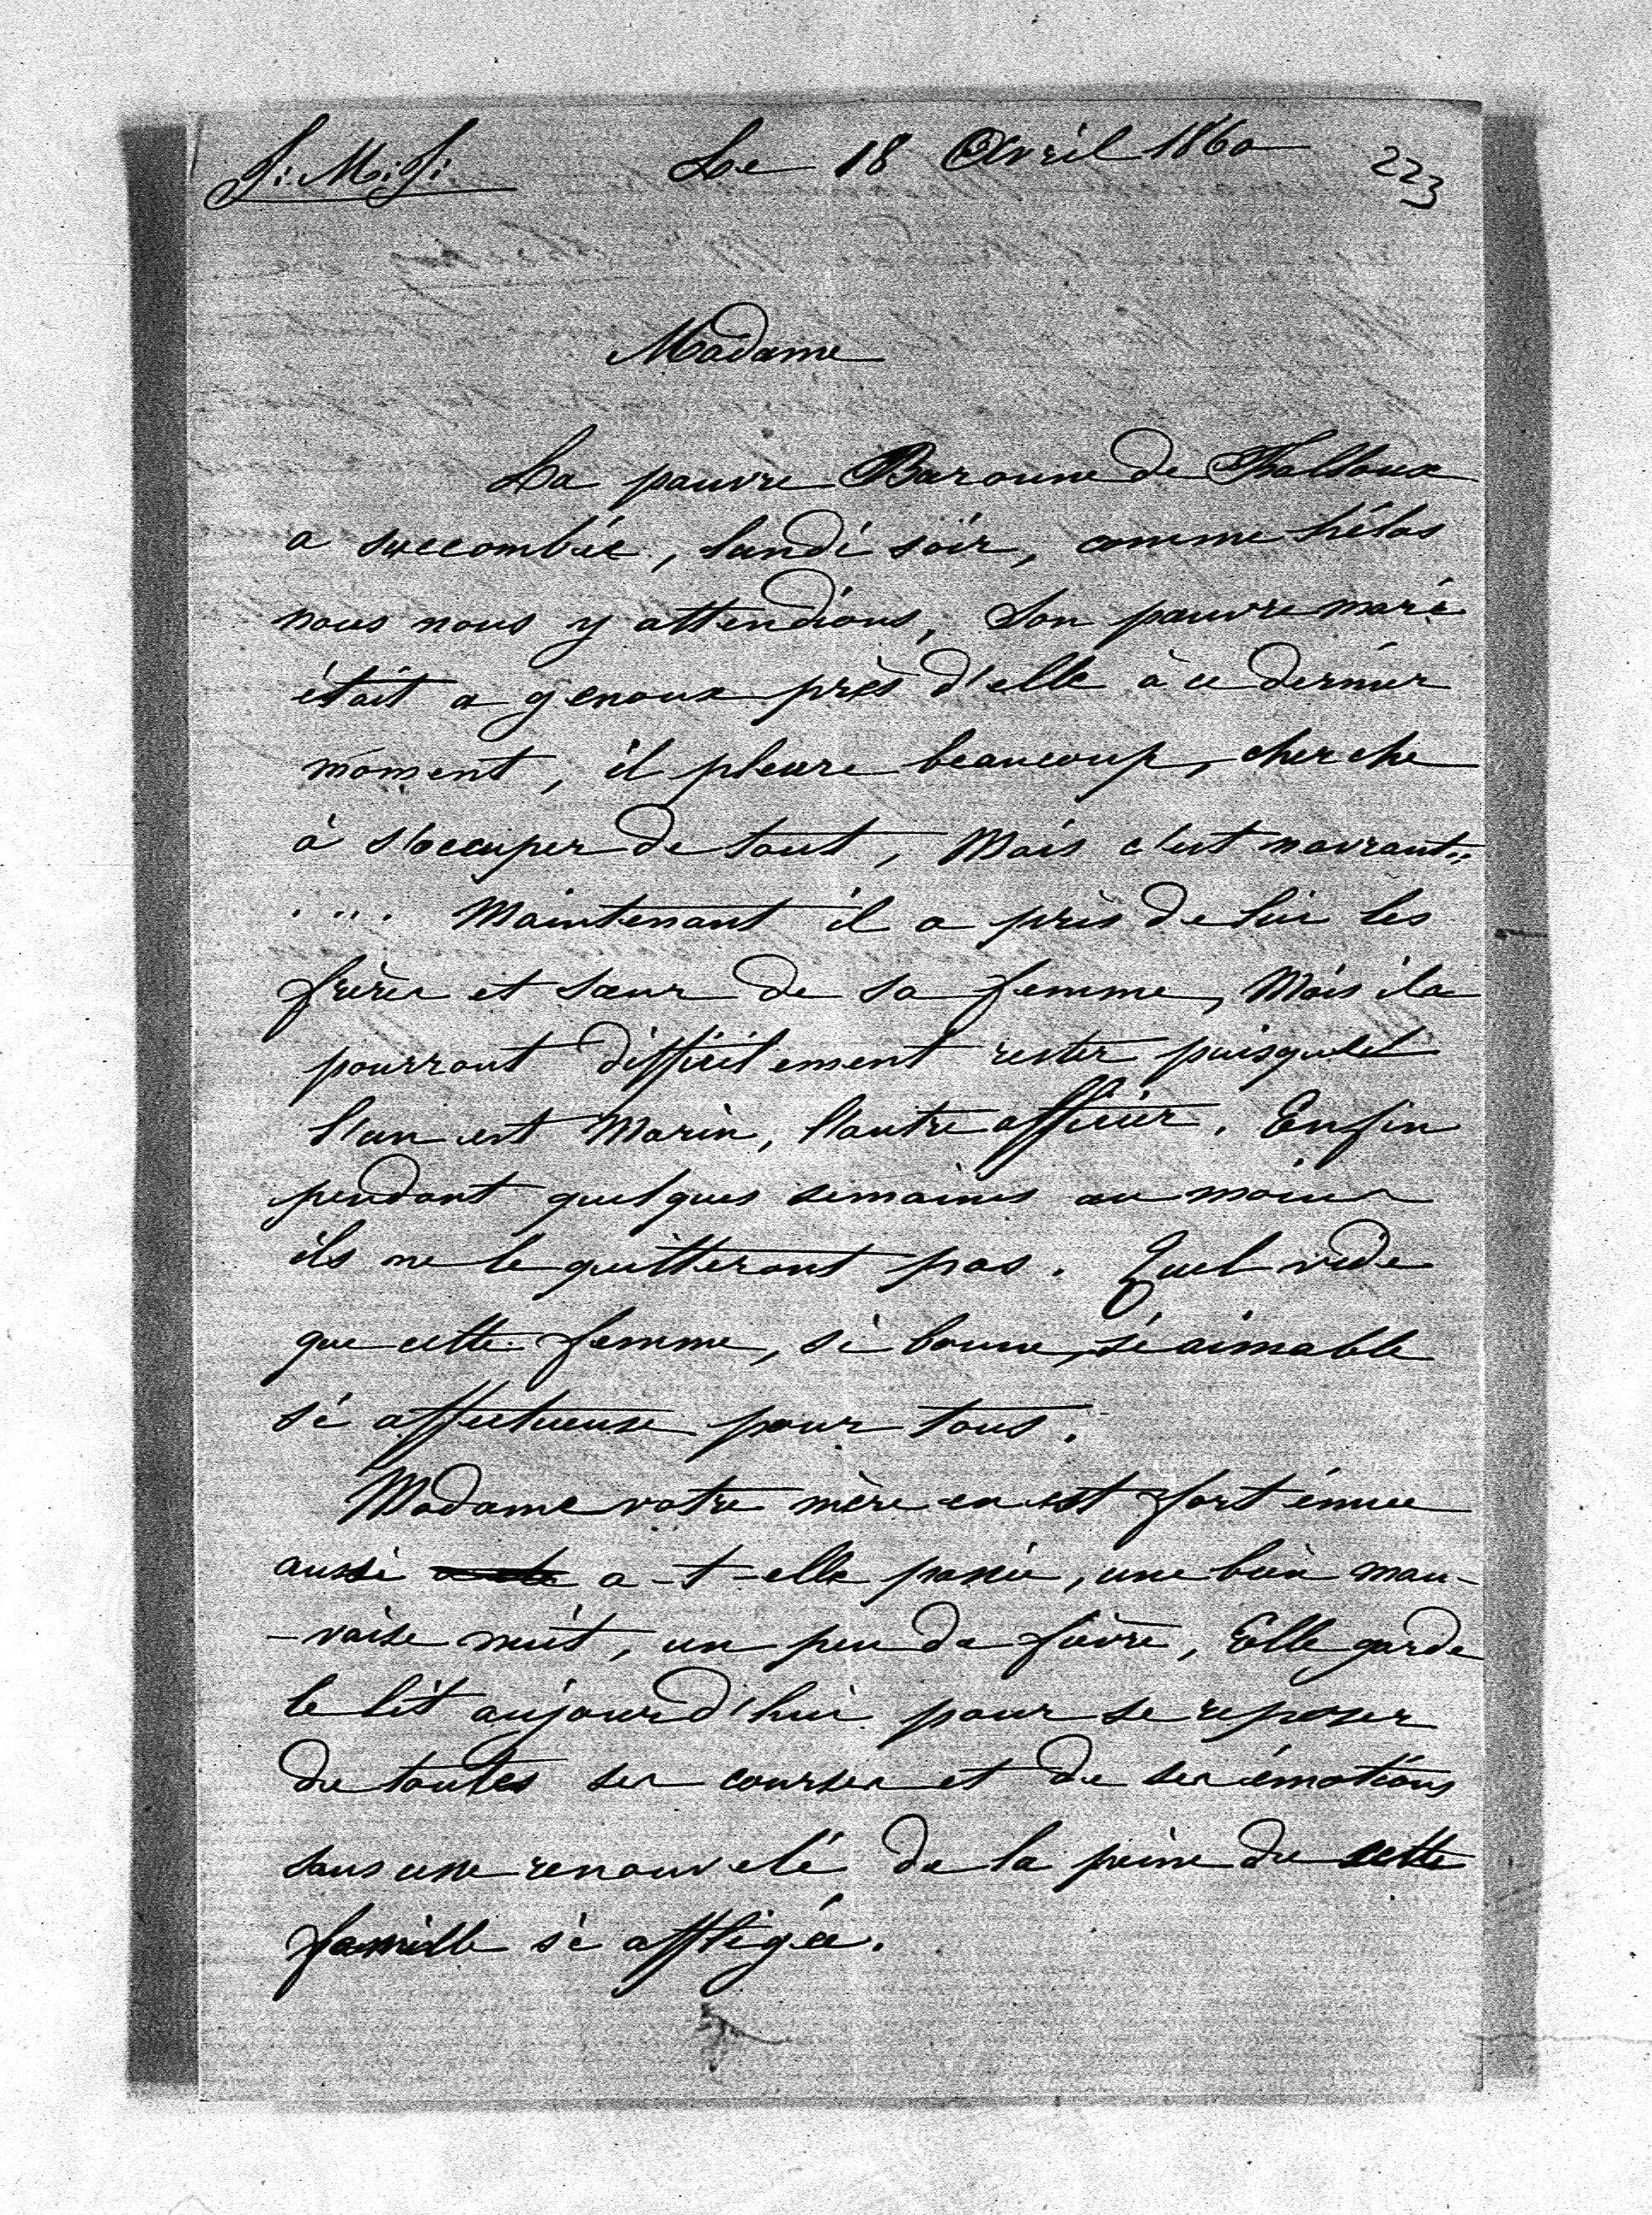 J: M: J: Le 18 Avril 1860 223
Madame
La pauvre Baronne de
a succombée, lundi soir, comme hélas
nous nous y attendions, Son pauvre mari
était a genoux près d'elle à ce dernier
moment, il pleure beaucoup, cherche
à s'occuper de tout, Mais c'est navrant..
. .. . Maintenant il a près de lui les
frères et sœur de sa femme, Mais ils
pourront difficilement rester puisque
l'un est Marin, l'autre officier. Enfin
pendant quelques semaines au moins
ils ne le quitteront pas. Quel vide
que cette femme, si bonne, si aimable
si affectueuse pour tous.
Madame votre mère en est fort émue
aussi a-t-elle passée, une bien mau-
-vaise nuit, un peu de fièvre, Elle garde
le lit aujourd'hui pour se reposer
de toutes ses courses et de ses émotions
sans cesse renouvelé de la peine de cette
famille si affligée.